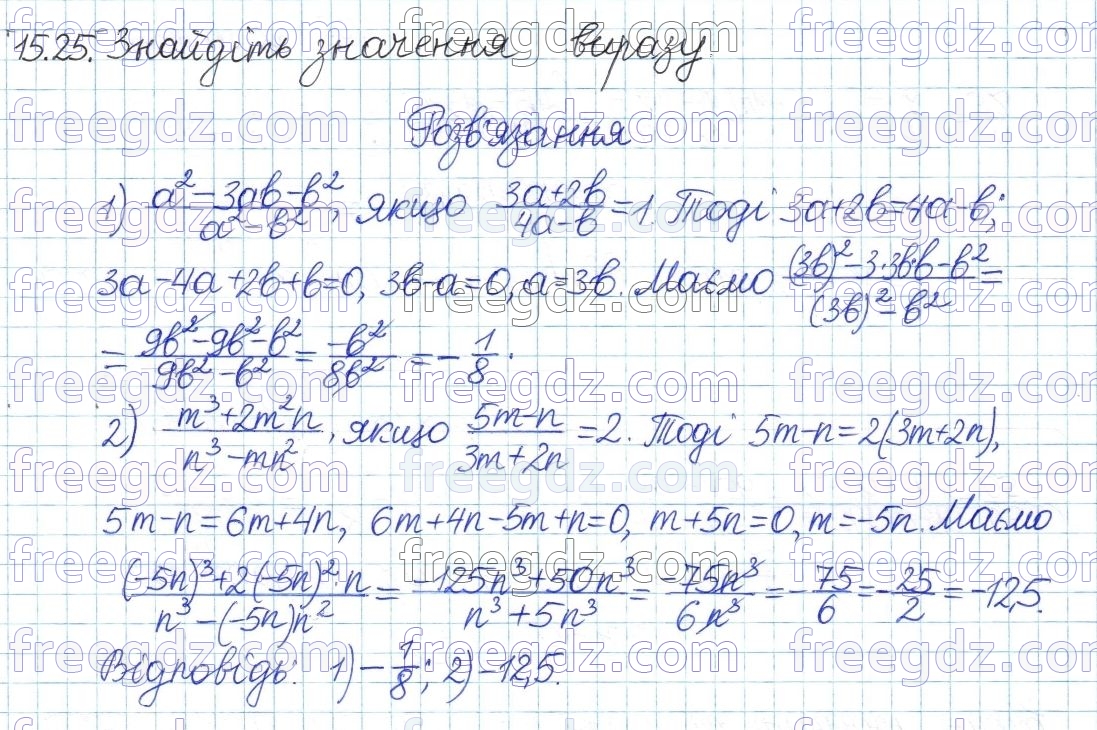 15.25. Знайдіть значення виразу
Розв'язання
1) (a² – 3ab – b²)/(a² – b²), якщо (3a+2b)/(4a–b) = 1. Тоді 3a+2b=4a–b;
3a–4a+2b+b=0, 3b–a=0, a=3b. Маємо ((3b)²–3·3b·b–b²)/((3b)²–b²) =
= (9b²–9b²–b²)/(9b²–b²) = (–b²)/(8b²) = –1/8.
2) (m³+2m²n)/(n³–mn²), якщо (5m–n)/(3m+2n) = 2. Тоді 5m–n=2(3m+2n),
5m–n=6m+4n, 6m+4n–5m+n=0, m+5n=0, m=–5n. Маємо
((–5n)³+2(–5n)²·n)/(n³–(–5n)n²) = (–125n³+50n³)/(n³+5n³) = (–75n³)/(6n³) = –75/6 = –25/2 = –12,5.
Відповідь: 1) –1/8; 2) –12,5.
freegdz.com